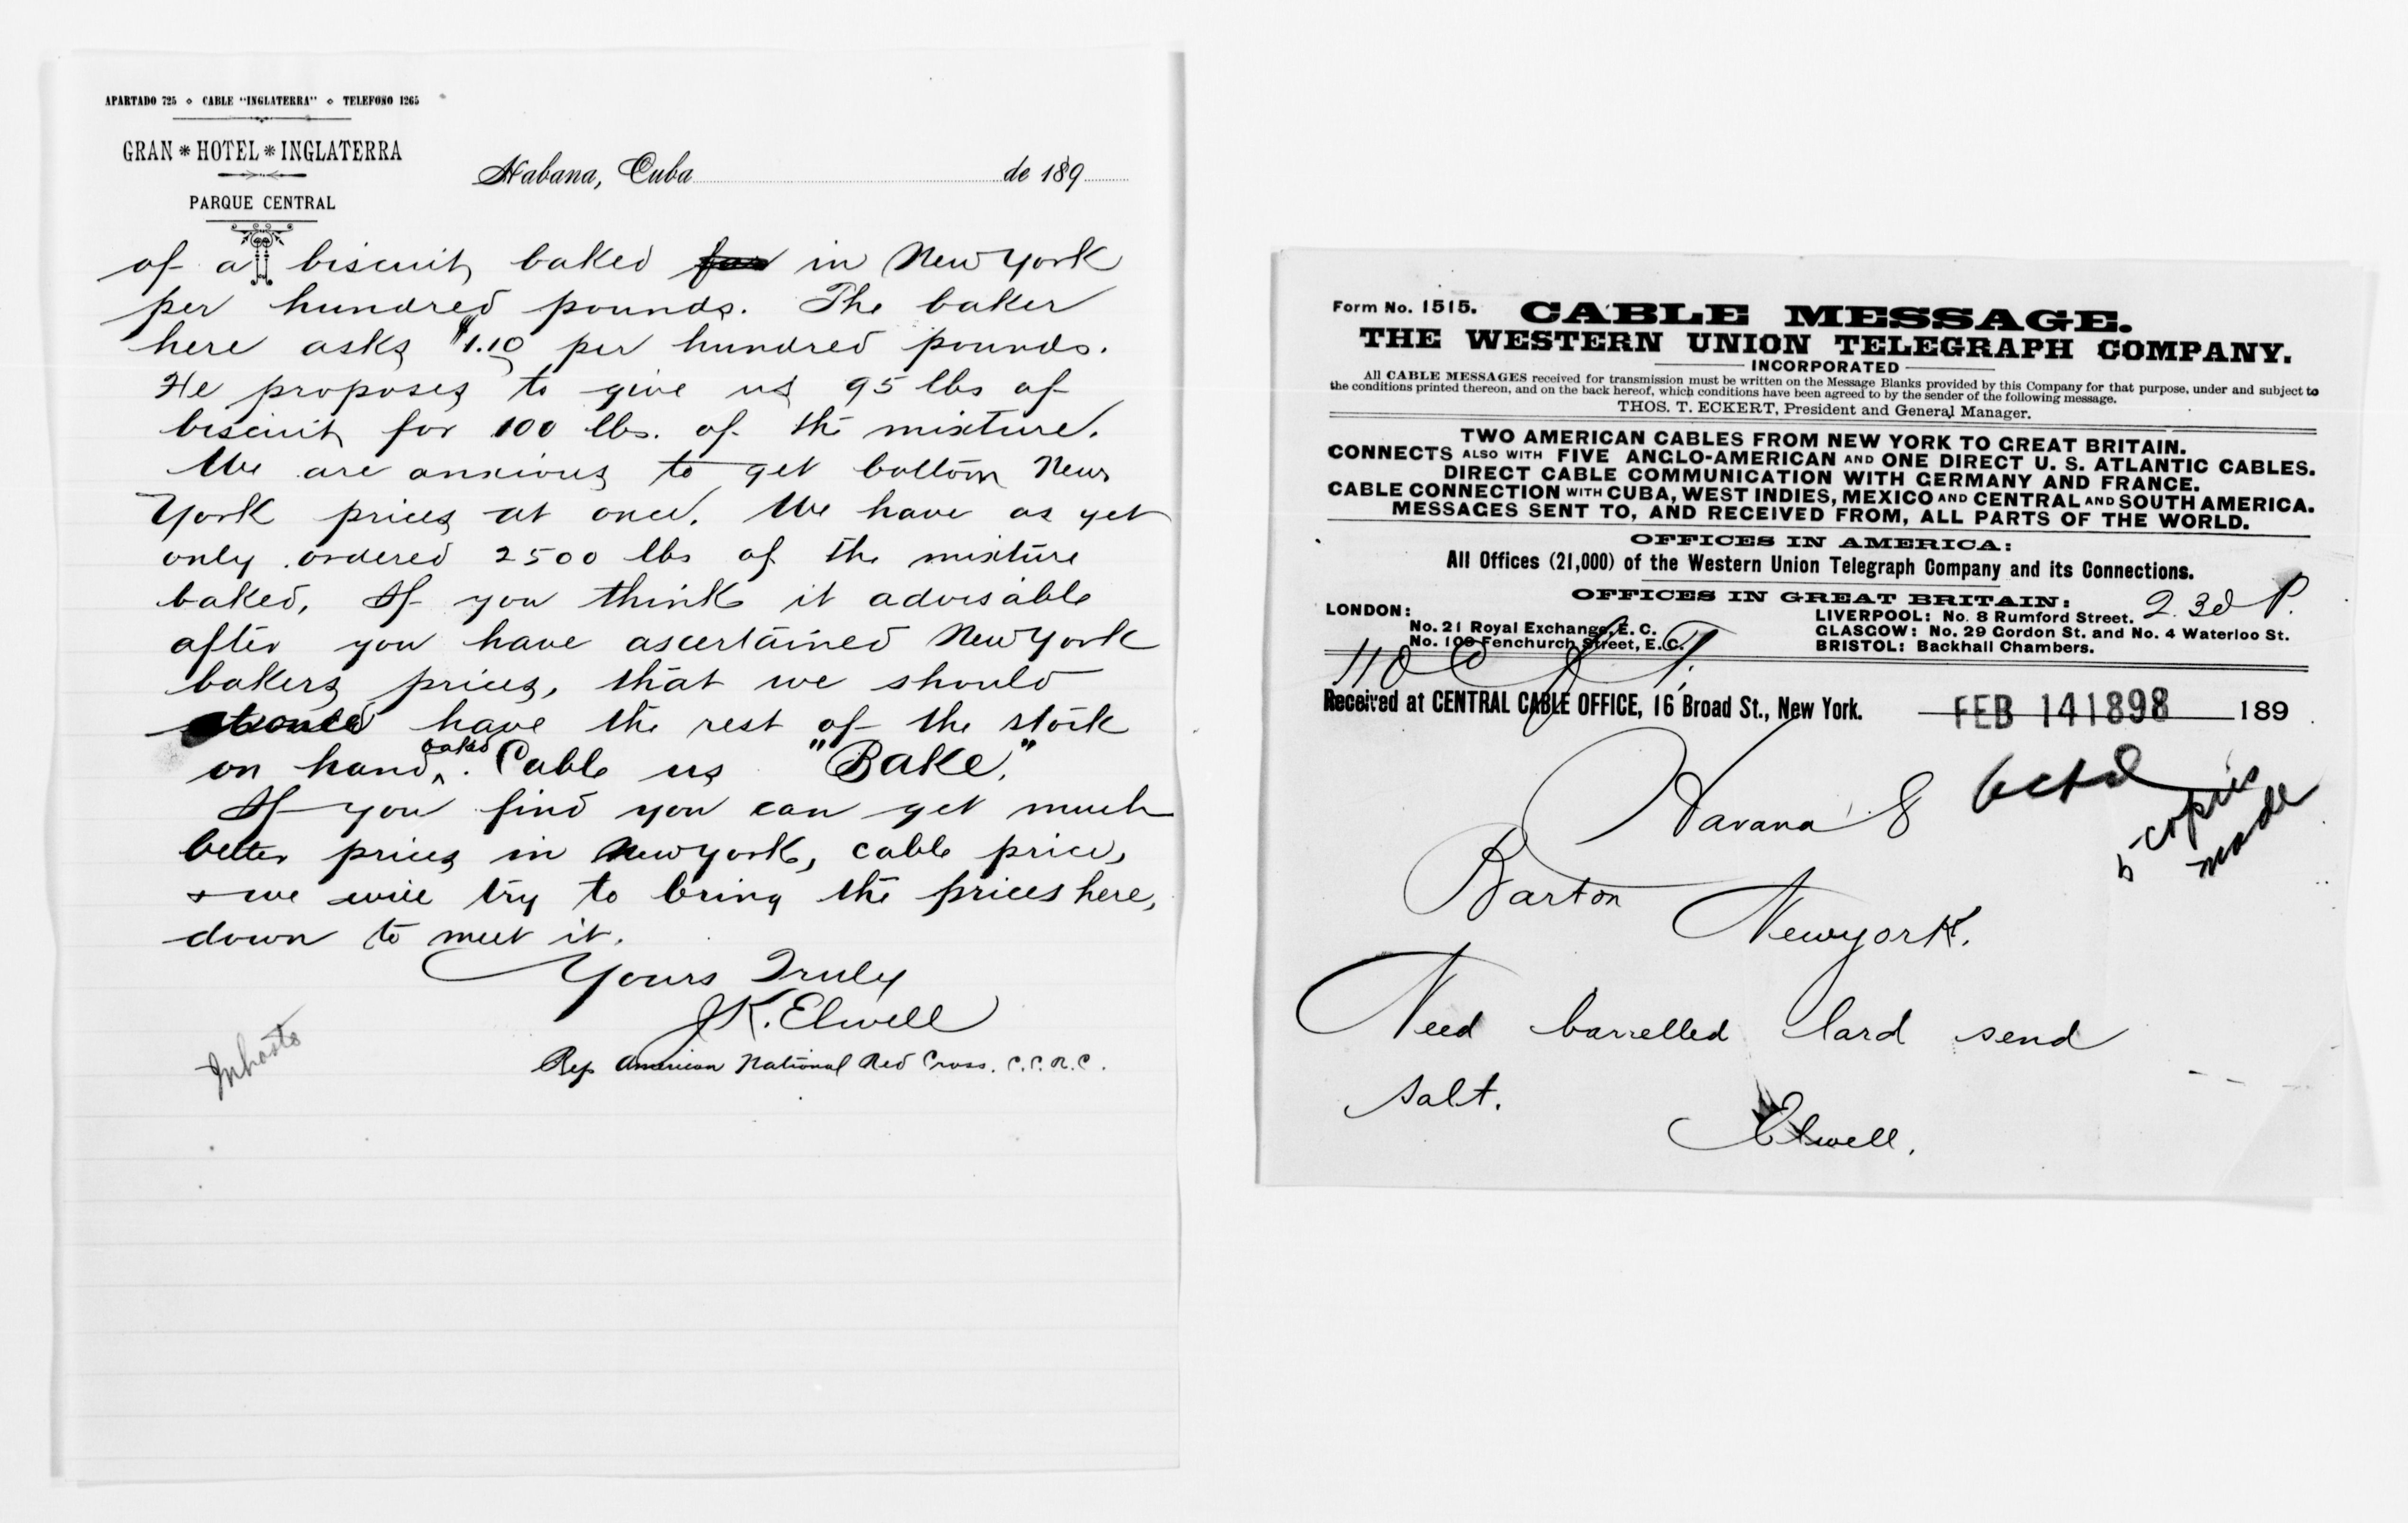 APARTADO 725 ⋄ CABLE "INGLATERRA" ⋄ TELEFONO 1265
GRAN * HOTEL * INGLATERRA
PARQUE CENTRAL
Habana, Cuba de 189
of a biscuit baked for in New York
per hundred pounds. The baker
here asks $1.10 per hundred pounds.
He proposes to give us 95 lbs of
biscuit for 100 lbs. of the mixture.
We are anxious to get bottom New
York prices at once. We have as yet
only ordered 2500 lbs of the mixture
baked. If you think it advisable
after you have ascertained New York
bakers prices, that we should
have the rest of the stock
on hand baked. Cable us "Bake."
If you find you can get much
better prices in New York, cable price,
& we will try to bring the prices here,
down to meet it.
Yours Truly
J.K. Elwell
Rep American National Red Cross. C.C.R.C.
Form No. 1515. CABLE MESSAGE.
THE WESTERN UNION TELEGRAPH COMPANY.
INCORPORATED
All CABLE MESSAGES received for transmission must be written on the Message Blanks provided by this Company for that purpose, under and subject to
the conditions printed thereon, and on the back hereof, which conditions have been agreed to by the sender of the following message.
THOS. T. ECKERT, President and General Manager.
TWO AMERICAN CABLES FROM NEW YORK TO GREAT BRITAIN.
CONNECTS ALSO WITH FIVE ANGLO-AMERICAN AND ONE DIRECT U. S. ATLANTIC CABLES.
DIRECT CABLE COMMUNICATION WITH GERMANY AND FRANCE.
CABLE CONNECTION WITH CUBA, WEST INDIES, MEXICO AND CENTRAL AND SOUTH AMERICA.
MESSAGES SENT TO, AND RECEIVED FROM, ALL PARTS OF THE WORLD.
OFFICES IN AMERICA:
All Offices (21,000) of the Western Union Telegraph Company and its Connections.
OFFICES IN GREAT BRITAIN:
LONDON:
No. 21 Royal Exchange, E. C.
No. 109 Fenchurch Street, E. C.
LIVERPOOL: No. 8 Rumford Street.
GLASGOW: No. 29 Gordon St. and No. 4 Waterloo St.
BRISTOL: Backhall Chambers.
Received at CENTRAL CABLE OFFICE, 16 Broad St., New York. FEB 14 1898 189
Havana 8
5 copies
made
Barton
Newyork.
Need barrelled lard send
salt.
Elwell.